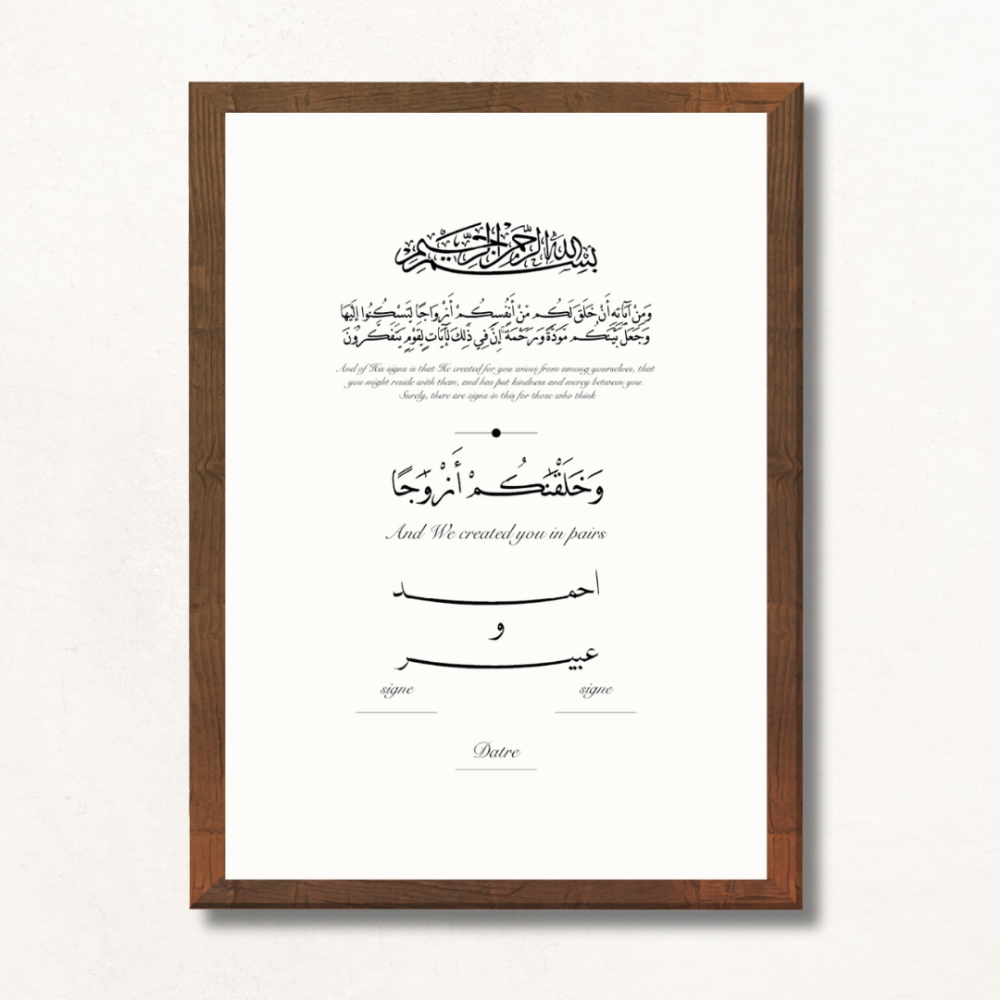 بِسْمِ اللهِ الرَّحْمٰنِ الرَّحِيْمِ
وَمِنْ آيَاتِهِ أَنْ خَلَقَ لَكُم مِّنْ أَنفُسِكُمْ أَزْوَاجًا لِّتَسْكُنُوا إِلَيْهَا
وَجَعَلَ بَيْنَكُم مَّوَدَّةً وَرَحْمَةً إِنَّ فِي ذَٰلِكَ لَآيَاتٍ لِّقَوْمٍ يَتَفَكَّرُونَ
And of His signs is that He created for you wives from among yourselves, that
you might reside with them, and has put kindness and mercy between you.
Surely, there are signs in this for those who think
وَخَلَقْنَٰكُمْ أَزْوَٰجًا
And We created you in pairs
احمد
و
عبير
signe signe
Datre